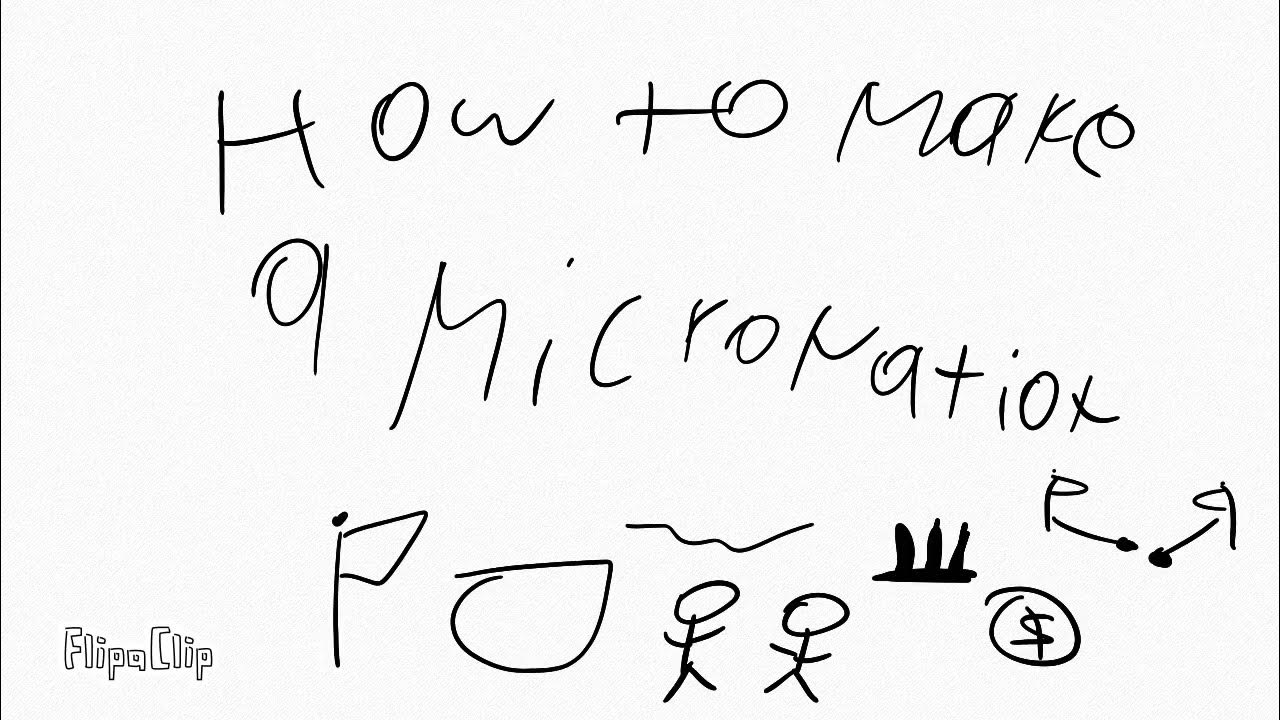 How to Make
a Micronation
$
FlipaClip